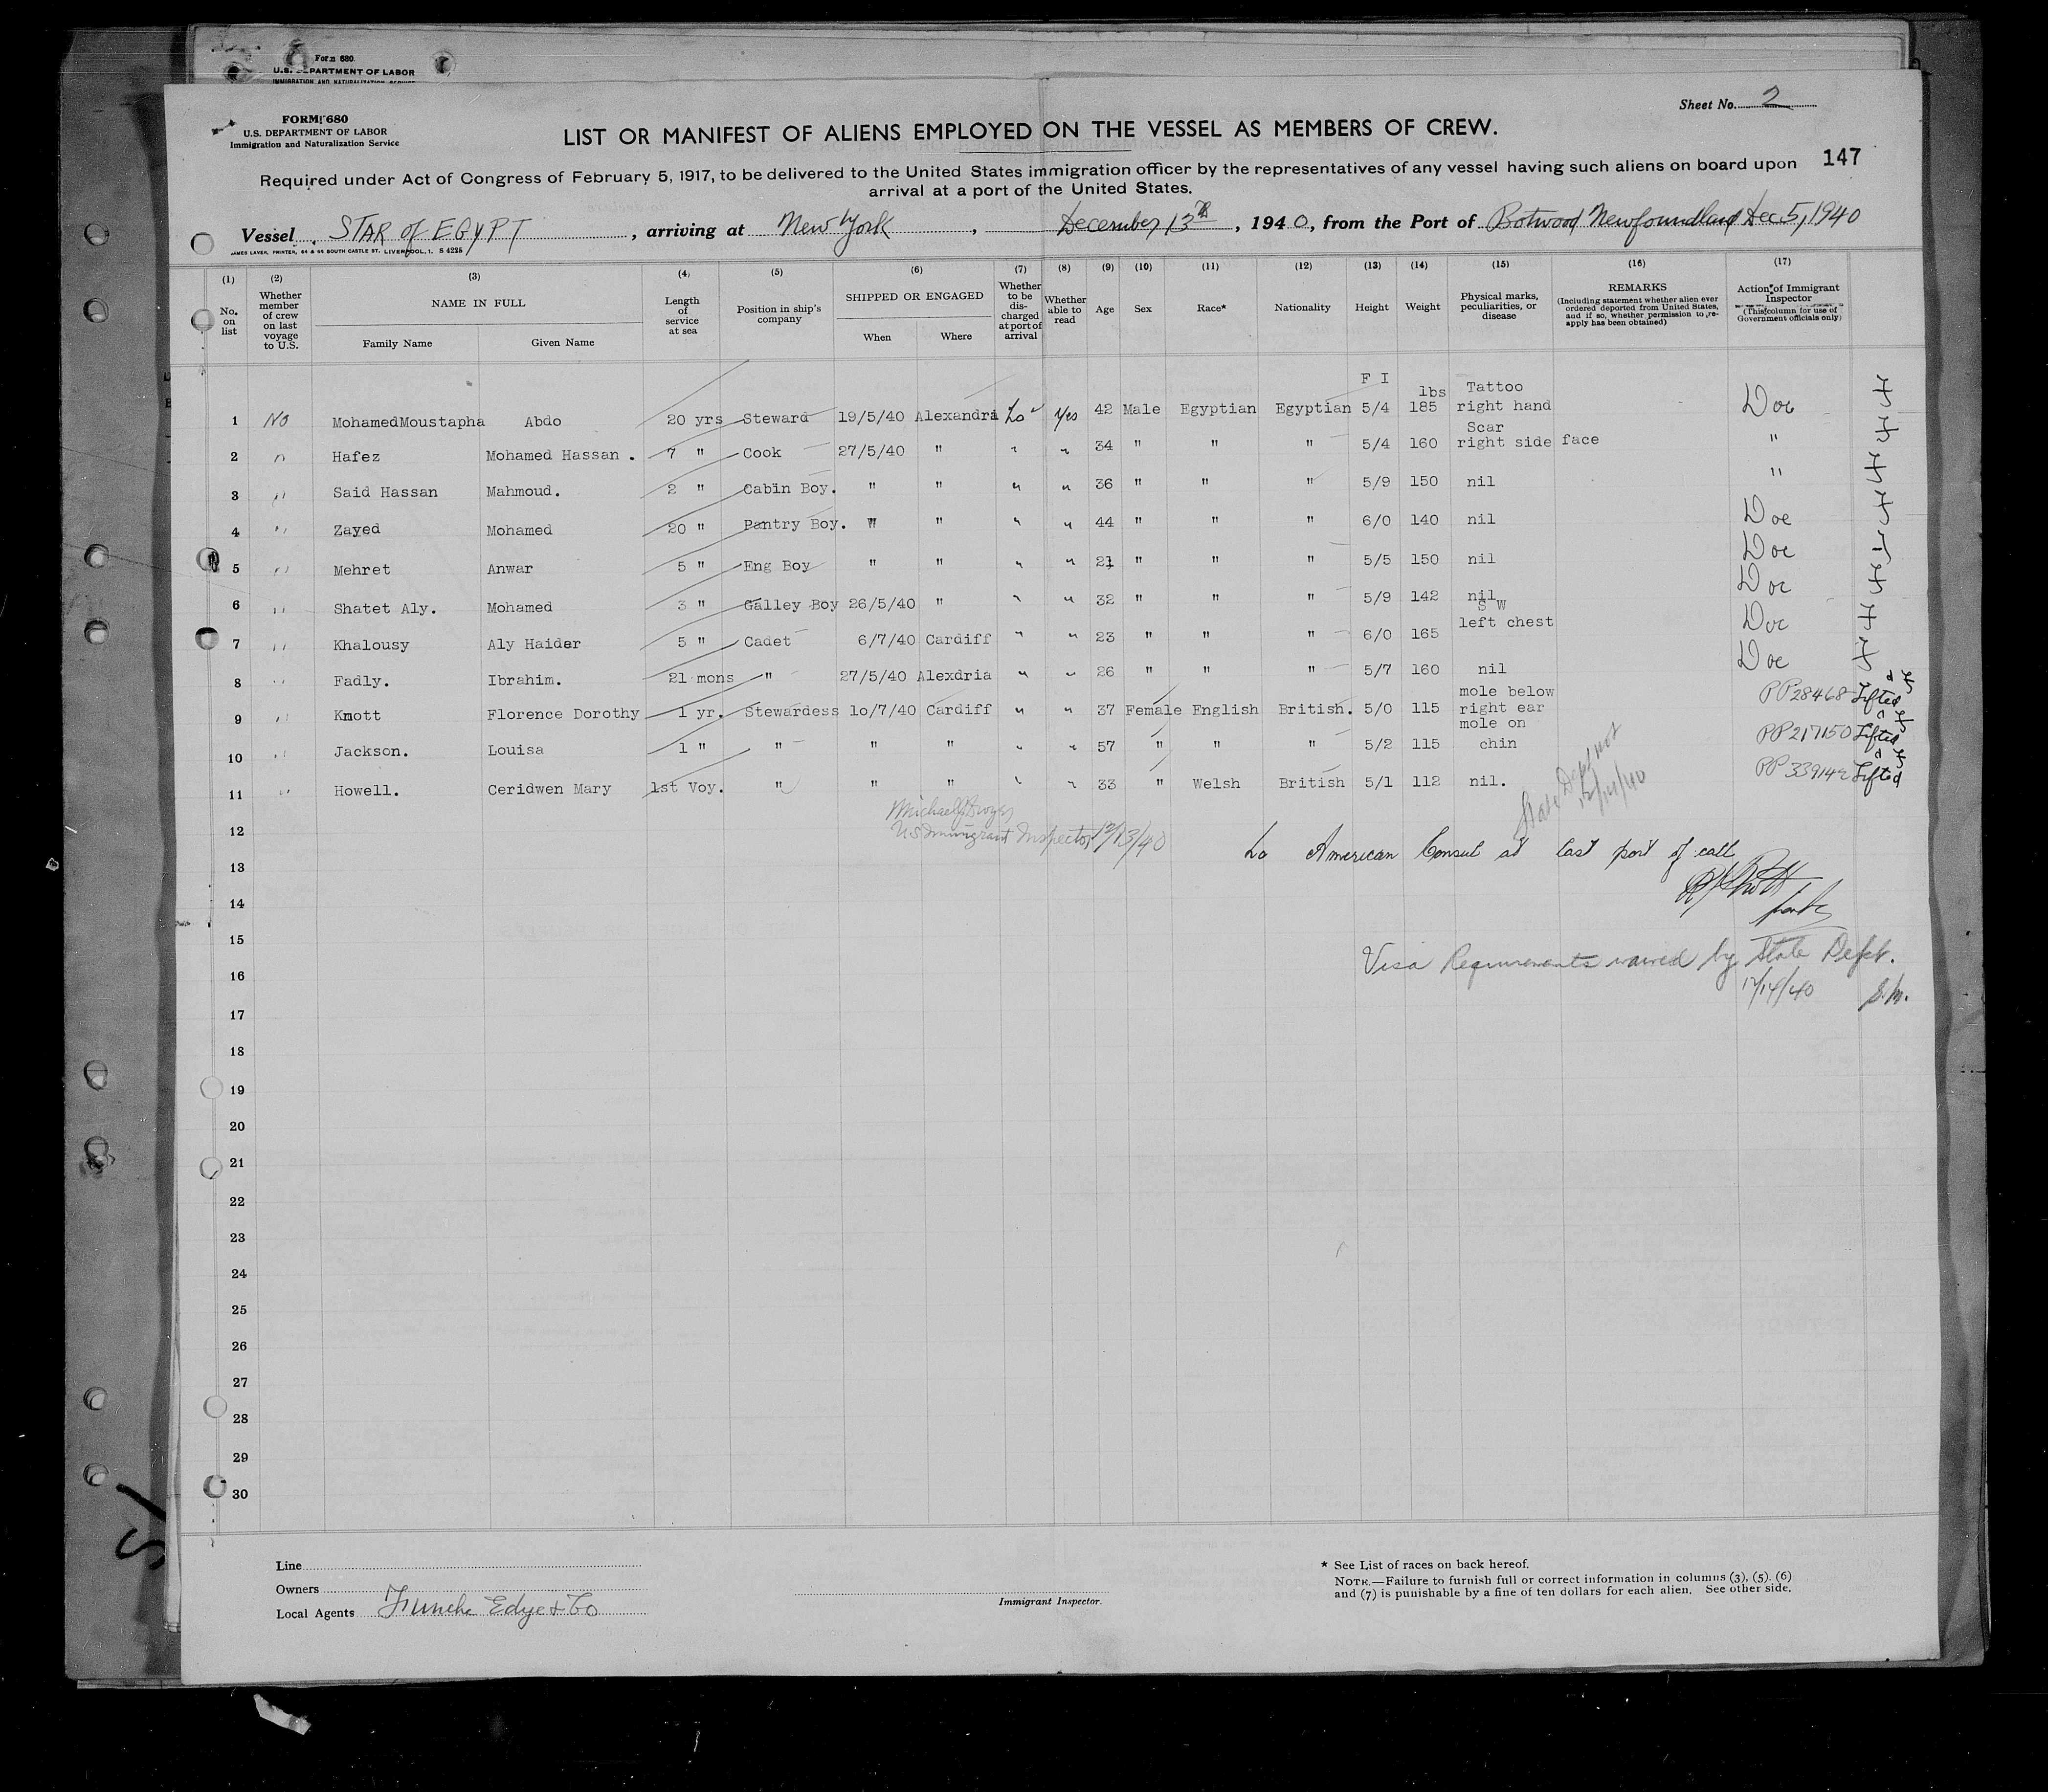 Form 680
U.S. DEPARTMENT OF LABOR
IMMIGRATION AND NATURALIZATION SERVICE
Sheet No. 2
FORM 680
U.S. DEPARTMENT OF LABOR
Immigration and Naturalization Service
LIST OR MANIFEST OF ALIENS EMPLOYED ON THE VESSEL AS MEMBERS OF CREW.
147
Required under Act of Congress of February 5, 1917, to be delivered to the United States immigration officer by the representatives of any vessel having such aliens on board upon
arrival at a port of the United States.
Vessel STAR of EGYPT, arriving at New York, December 13th, 1940, from the Port of Botwood Newfoundland Dec 5, 1940
JAMES LAVER, PRINTER, 64 & 66 SOUTH CASTLE ST. LIVERPOOL, 1. S 4225
(1) (2) (3) (4) (5) (6) (7) (8) (9) (10) (11) (12) (13) (14) (15) (16) (17)
No. on list
Whether member of crew on last voyage to U.S.
NAME IN FULL
Family Name Given Name
Length of service at sea
Position in ship's company
SHIPPED OR ENGAGED
When Where
Whether to be discharged at port of arrival
Whether able to read
Age Sex Race* Nationality Height Weight
Physical marks, peculiarities, or disease
REMARKS
(Including statement whether alien ever ordered deported from United States, and if so, whether permission to re-apply has been obtained)
Action of Immigrant Inspector
(This column for use of Government officials only)
F I lbs Tattoo
1 No MohamedMoustapha Abdo 20 yrs Steward 19/5/40 Alexandria No Yes 42 Male Egyptian Egyptian 5/4 185 right hand
Scar
2 " Hafez Mohamed Hassan . 7 " Cook 27/5/40 " " " 34 " " " 5/4 160 right side face "
3 " Said Hassan Mahmoud. 2 " Cabin Boy. " " " " 36 " " " 5/9 150 nil "
4 " Zayed Mohamed 20 " Pantry Boy. " " " " 44 " " " 6/0 140 nil
5 " Mehret Anwar 5 " Eng Boy " " " " 21 " " " 5/5 150 nil
6 " Shatet Aly. Mohamed 3 " Galley Boy 26/5/40 " " " 32 " " " 5/9 142 nil
S W
7 " Khalousy Aly Haider 5 " Cadet 6/7/40 Cardiff " " 23 " " " 6/0 165 left chest
8 " Fadly. Ibrahim. 21 mons " 27/5/40 Alexdria " " 26 " " " 5/7 160 nil
mole below
9 " Knott Florence Dorothy 1 yr. Stewardess 10/7/40 Cardiff " " 37 Female English British. 5/0 115 right ear PP 28468 Lifted
mole on
10 " Jackson. Louisa 1 " " " " " " 57 " " " 5/2 115 chin PP 217150 Lifted
11 " Howell. Ceridwen Mary 1st Voy. " " " " " 33 " Welsh British 5/1 112 nil. Lifted
State Dept
12/14/40
12
US Immigrant Inspector 12/13/40
No American Consul at last port of call
13
14
15
Visa Requirements waived by State Dept.
16
12/14/40 S.M.
17
18
19
20
21
22
23
24
25
26
27
28
29
30
Line
Owners
Local Agents Funch Edye & Co
Immigrant Inspector.
* See List of races on back hereof.
NOTE.—Failure to furnish full or correct information in columns (3), (5), (6)
and (7) is punishable by a fine of ten dollars for each alien. See other side.